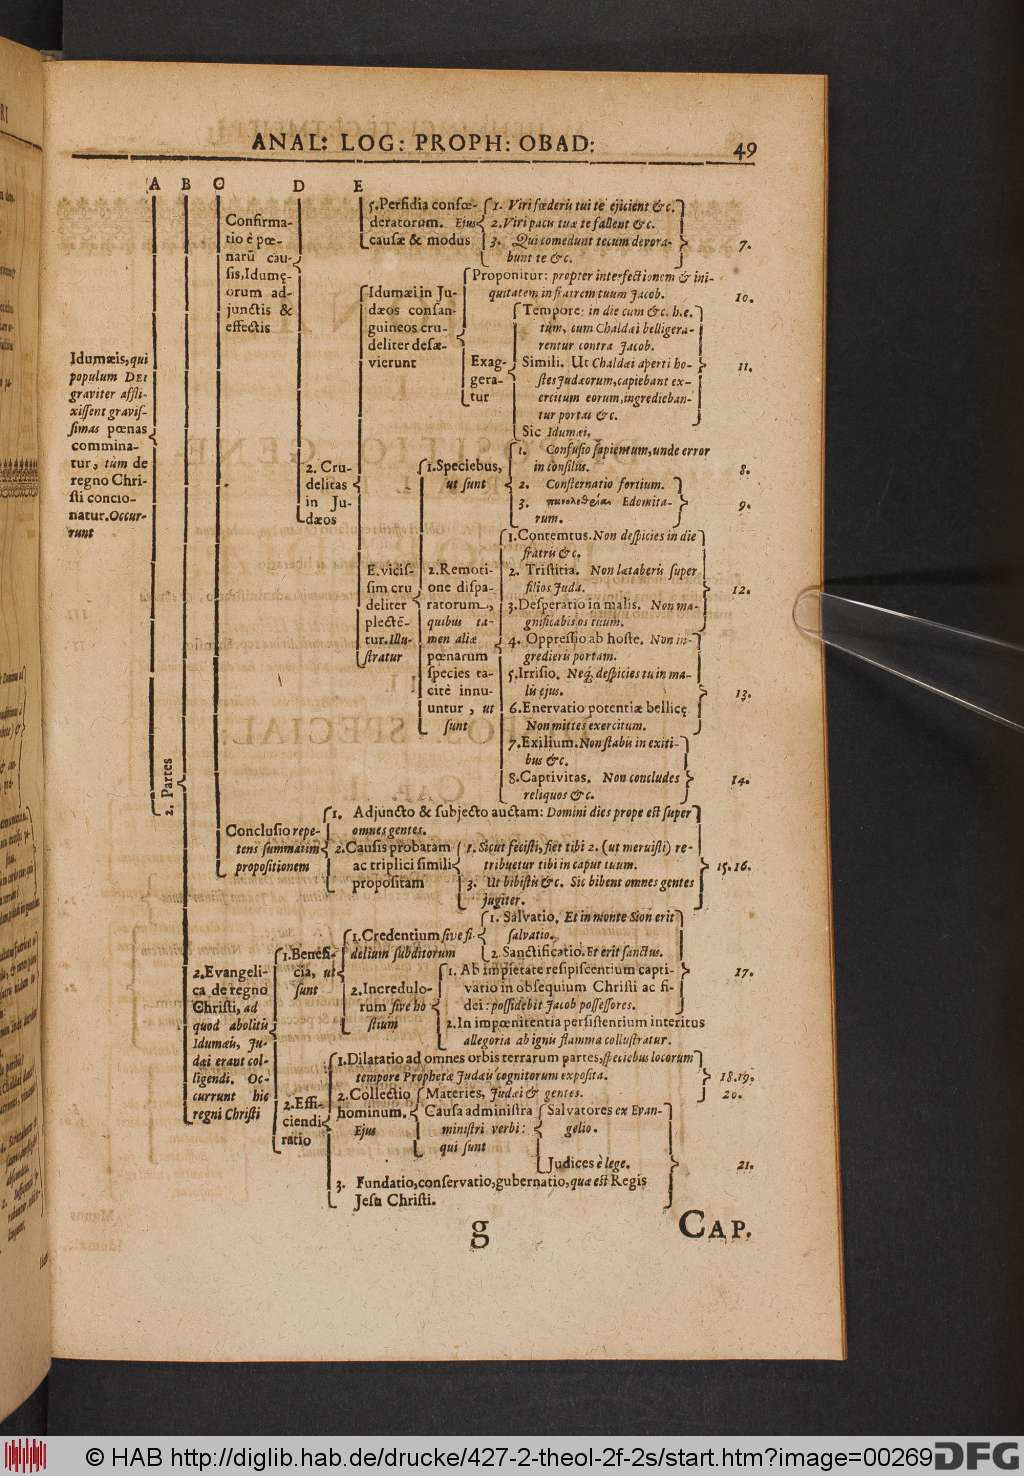 ANAL: LOG: PROPH: OBAD:
49
A B C D E
Idumæis, qui
populum DEI
graviter affli-
xissent gravis-
simas pœnas
commina-
tur, tùm de
regno Chri-
sti concio-
natur. Occur-
runt
2. Partes
Confirma-
tio è pœ-
narū cau-
sis, Idumę-
orum ad-
junctis &
effectis
5. Perfidia confœ-
deratorum. Ejus
causæ & modus
1. Viri fœderis tui te ejicient &c.
2. Viri pacis tuæ te fallent &c.
3. Qui comedunt tecum devora-
bunt te &c.
7.
2. Cru-
delitas
in Ju-
dæos
Idumæi in Ju-
dæos consan-
guineos cru-
deliter desæ-
vierunt
Proponitur: propter interfectionem & ini-
quitatem in fratrem tuum Jacob.
10.
Exag-
gera-
tur
Tempore: in die cum &c. h.e.
tùm, cum Chaldæi belligera-
rentur contra Jacob.
Simili. Ut Chaldæi aperti ho-
stes Judæorum, capiebant ex-
ercitum eorum, ingredieban-
tur portas &c.
Sic Idumæi.
11.
E. vicis-
sim cru
deliter
plectē-
tur. Illu-
stratur
1. Speciebus,
ut sunt
1. Confusio sapientum, unde error
in consiliis.
8.
2. Consternatio fortium.
3. πανολεθρίαν Edomita-
rum.
9.
2. Remoti-
one dispa-
ratorum,
quibus ta-
men aliæ
pœnarum
species ta-
citè innu-
untur, ut
sunt
1. Contemtus. Non despicies in die
fratris &c.
2. Tristitia. Non lætaberis super
filios Juda.
3. Desperatio in malis. Non ma-
gnificabis os tuum.
12.
4. Oppressio ab hoste. Non in-
gredieris portam.
5. Irrisio. Neq; despicies tu in ma-
lis ejus.
6. Enervatio potentiæ bellicę
Non mittes exercitum.
13.
7. Exilium. Non stabis in exiti-
bus &c.
8. Captivitas. Non concludes
reliquos &c.
14.
Conclusio repe-
tens summatim
propositionem
1. Adjuncto & subjecto auctam: Domini dies prope est super
omnes gentes.
2. Causis probatam
ac triplici simili
propositam
1. Sicut fecisti, fiet tibi 2. (ut meruisti) re-
tribuetur tibi in caput tuum.
3. Ut bibistis &c. Sic bibent omnes gentes
jugiter.
15. 16.
2. Evangeli-
ca de regno
Christi, ad
quod abolitis
Idumæis, Ju-
dæi erant col-
ligendi. Oc-
currunt hic
regni Christi
1. Benefi-
cia, ut
sunt
1. Credentium sive fi-
delium subditorum
1. Salvatio. Et in monte Sion erit
salvatio.
2. Sanctificatio. Et erit sanctus.
2. Incredulo-
rum sive ho
stium
1. Ab impietate resipiscentium capti-
vatio in obsequium Christi ac fi-
dei: possidebit Jacob possessores.
17.
2. In impœnitentia persistentium interitus
allegoria ab ignis flamma collustratur.
2. Effi-
ciendi
ratio
1. Dilatatio ad omnes orbis terrarum partes, speciebus locorum
tempore Prophetæ Judæis cognitorum exposita.
18. 19.
2. Collectio
hominum.
Ejus
Materies, Judæi & gentes.
20.
Causa administra
ministri verbi:
qui sunt
Salvatores ex Evan-
gelio.
Judices è lege.
21.
3. Fundatio, conservatio, gubernatio, quæ est Regis
Jesu Christi.
g
CAP.
© HAB http://diglib.hab.de/drucke/427-2-theol-2f-2s/start.htm?image=00269
DFG